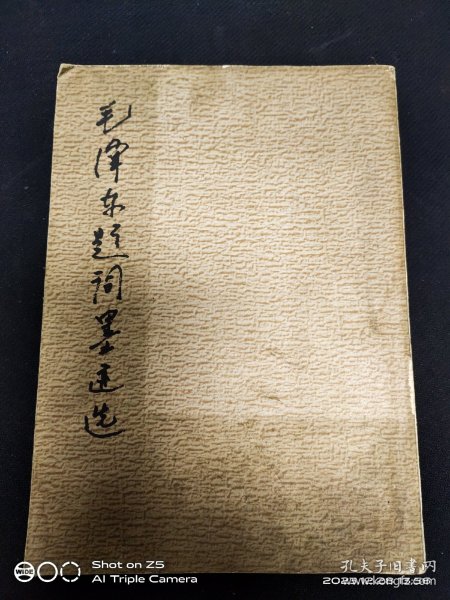 毛泽东题词墨迹选
WIDE
Shot on Z5
AI Triple Camera
孔夫子旧书网